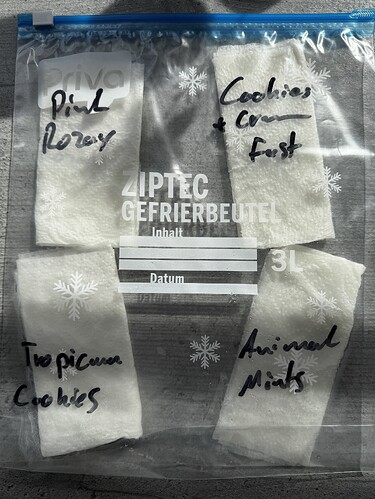 Priva
Pink
Rozay
Cookies
+ Cream
Fast
ZIPTEC
GEFRIERBEUTEL
Inhalt
3L
Datum
Tropicana
Cookies
Animal
Mints